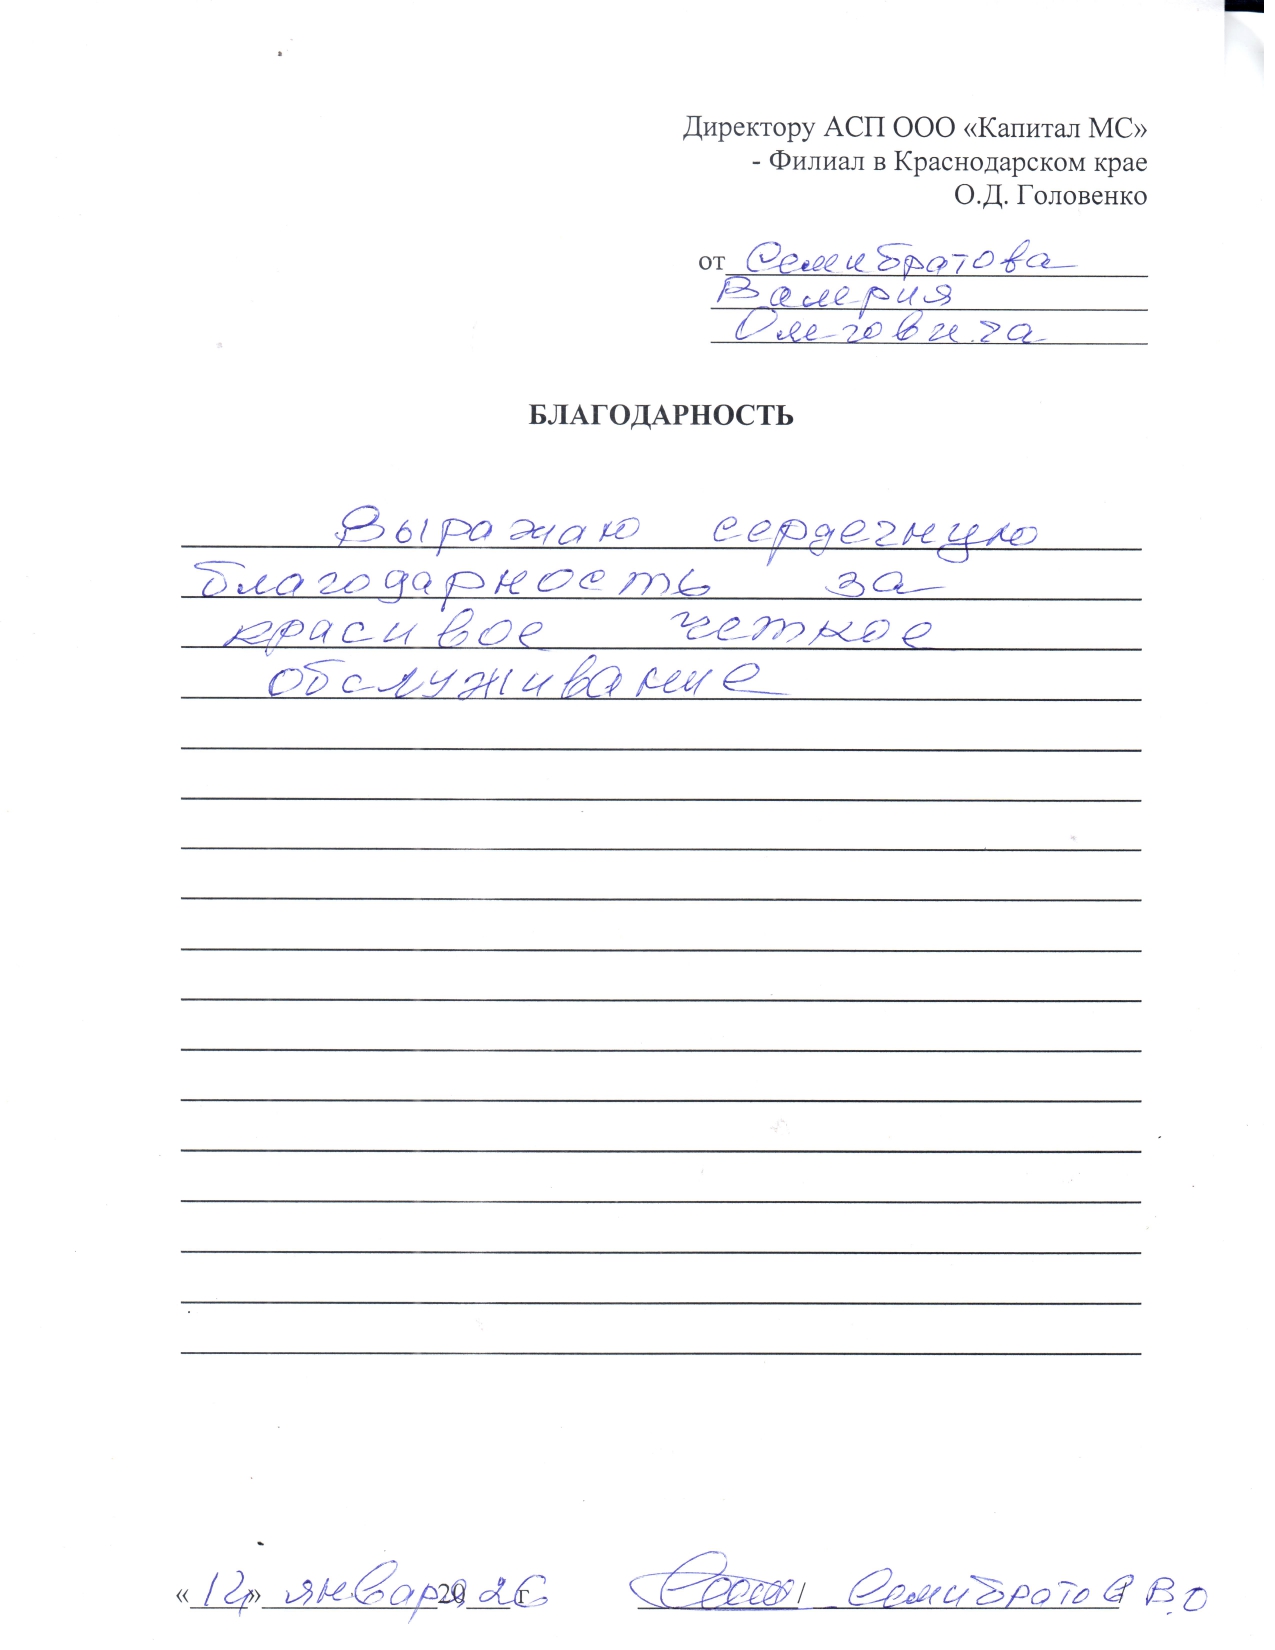 Директору АСП ООО «Капитал МС»
- Филиал в Краснодарском крае
О.Д. Головенко
от Семибратова
Валерия
Олеговича
БЛАГОДАРНОСТЬ
Выражаю сердечную
благодарность за
красивое четкое
обслуживание
«12» января 2026 г / Семибратов В.О